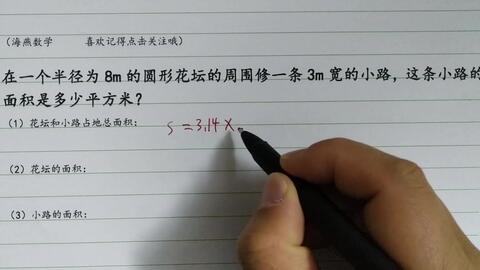 (海燕数学 喜欢记得点击关注哦)
在一个半径为 8m 的圆形花坛的周围修一条 3m 宽的小路，这条小路的
面积是多少平方米？
(1) 花坛和小路占地总面积： S = 3.14 ×
(2) 花坛的面积：
(3) 小路的面积：